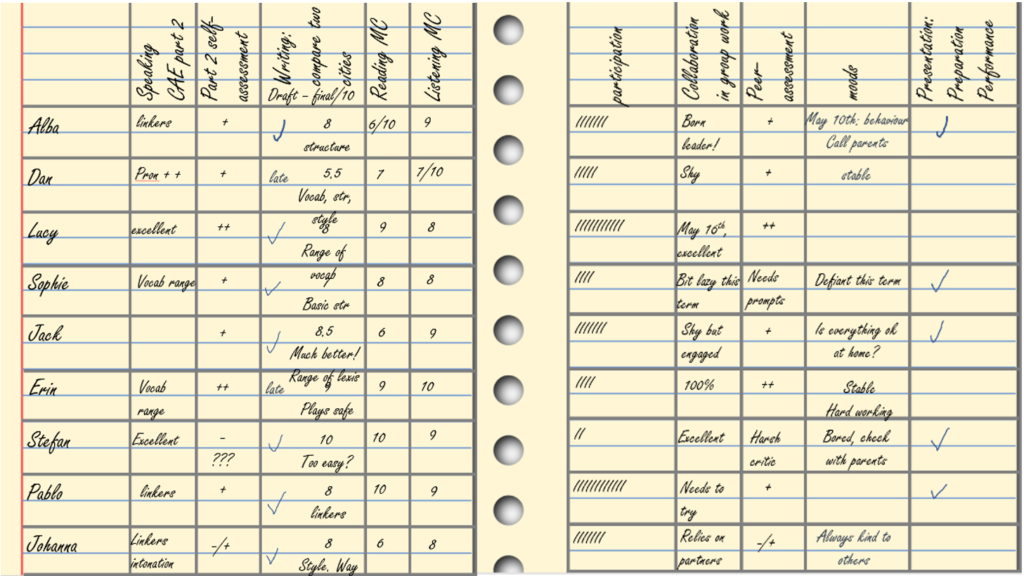 Speaking
CAE part 2
Part 2 self-
assessment
Writing:
compare two
cities
Draft – final/10
Reading MC
Listening MC
participation
Collaboration
in group work
Peer-
assessment
moods
Presentation:
Preparation
Performance
Alba
linkers
+
✓
8
structure
6/10
9
///////
Born
leader!
+
May 10th: behaviour
Call parents
✓
Dan
Pron ++
+
late
5,5
Vocab, str,
style
7
7/10
/////
Shy
+
stable
Lucy
excellent
++
✓
8
Range of
vocab
9
8
///////////
May 16th,
excellent
++
Sophie
Vocab range
+
✓
Basic str
8
8
////
Bit lazy this
term
Needs
prompts
Defiant this term
✓
Jack
+
✓
8,5
Much better!
Range of lexis
6
9
///////
Shy but
engaged
+
Is everything ok
at home?
✓
Erin
Vocab
range
++
late
9
Plays safe
9
10
////
100%
++
Stable
Hard working
Stefan
Excellent
–
???
✓
10
Too easy?
10
9
//
Excellent
Harsh
critic
Bored, check
with parents
✓
Pablo
linkers
+
✓
8
linkers
10
9
////////////
Needs to
try
+
✓
Johanna
Linkers
intonation
-/+
✓
8
Style. Way
6
8
///////
Relies on
partners
-/+
Always kind to
others